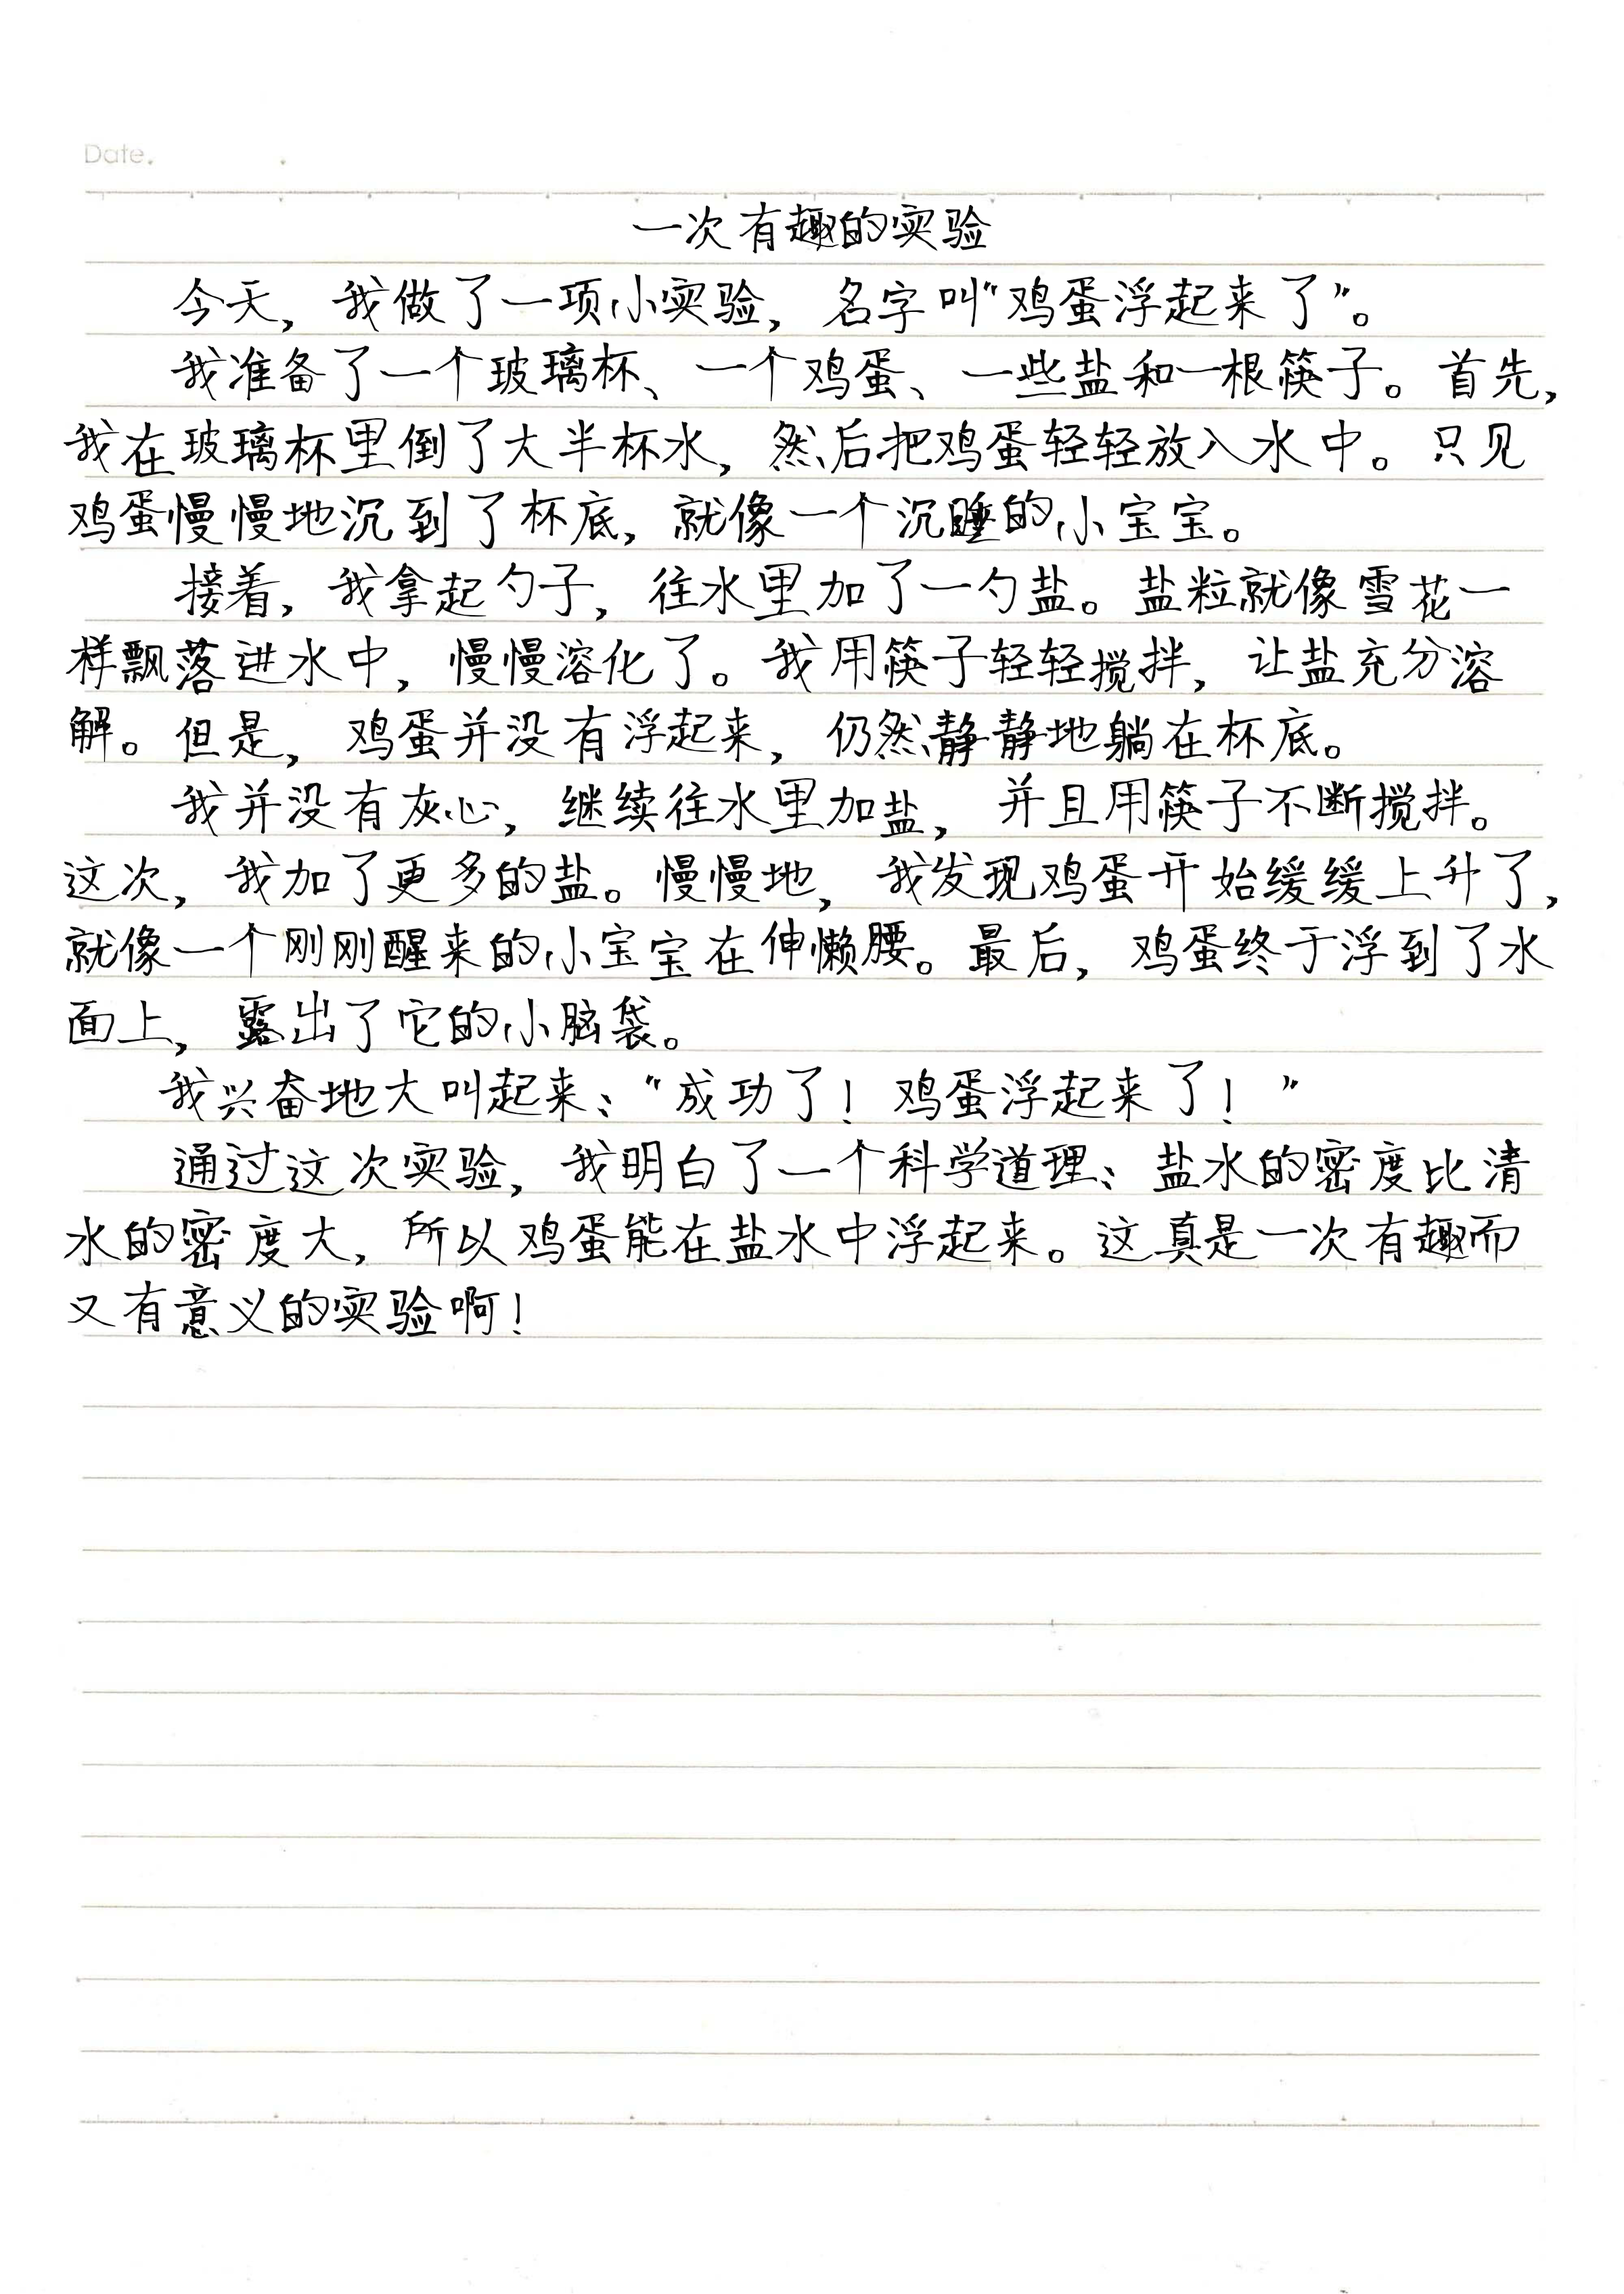 Date.
一次有趣的实验
今天，我做了一项小实验，名字叫“鸡蛋浮起来了”。
我准备了一个玻璃杯、一个鸡蛋、一些盐和一根筷子。首先，
我在玻璃杯里倒了大半杯水，然后把鸡蛋轻轻放入水中。只见
鸡蛋慢慢地沉到了杯底，就像一个沉睡的小宝宝。
接着，我拿起勺子，往水里加了一勺盐。盐粒就像雪花一
样飘落进水中，慢慢溶化了。我用筷子轻轻搅拌，让盐充分溶
解。但是，鸡蛋并没有浮起来，仍然静静地躺在杯底。
我并没有灰心，继续往水里加盐，并且用筷子不断搅拌。
这次，我加了更多的盐。慢慢地，我发现鸡蛋开始缓缓上升了，
就像一个刚刚醒来的小宝宝在伸懒腰。最后，鸡蛋终于浮到了水
面上，露出了它的小脑袋。
我兴奋地大叫起来：“成功了！鸡蛋浮起来了！”
通过这次实验，我明白了一个科学道理：盐水的密度比清
水的密度大，所以鸡蛋能在盐水中浮起来。这真是一次有趣而
又有意义的实验啊！